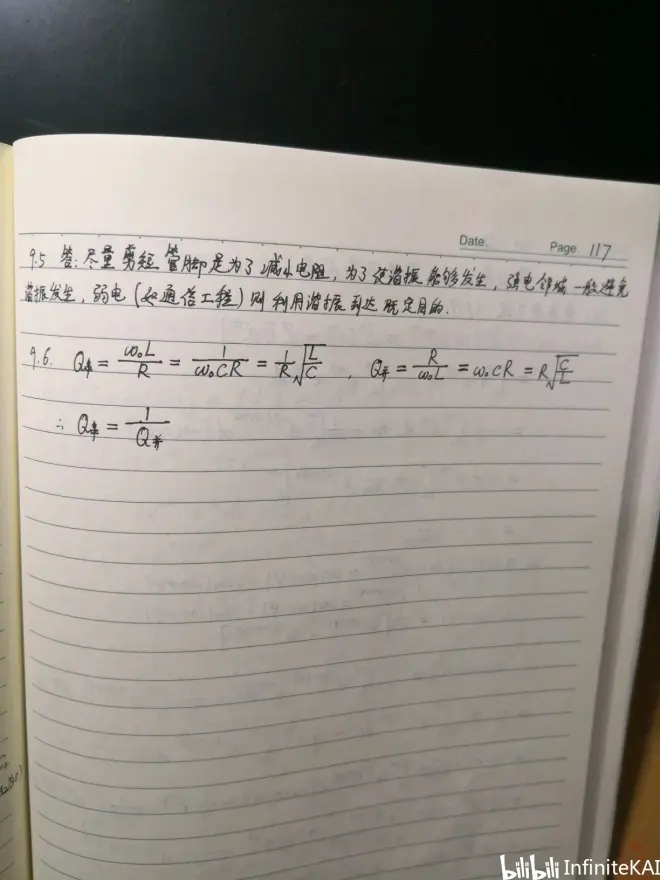 Date.
Page 117
9.5 答:尽量剪短管脚是为了减小电阻,为了使谐振能够发生,强电领域一般避免
谐振发生,弱电(如通信工程)则利用谐振到达既定目的.
9.6. Q串 = ω₀L/R = 1/(ω₀CR) = (1/R)√(L/C) , Q并 = R/(ω₀L) = ω₀CR = R√(C/L)
∴ Q串 = 1/Q并
bilibili InfiniteKAI